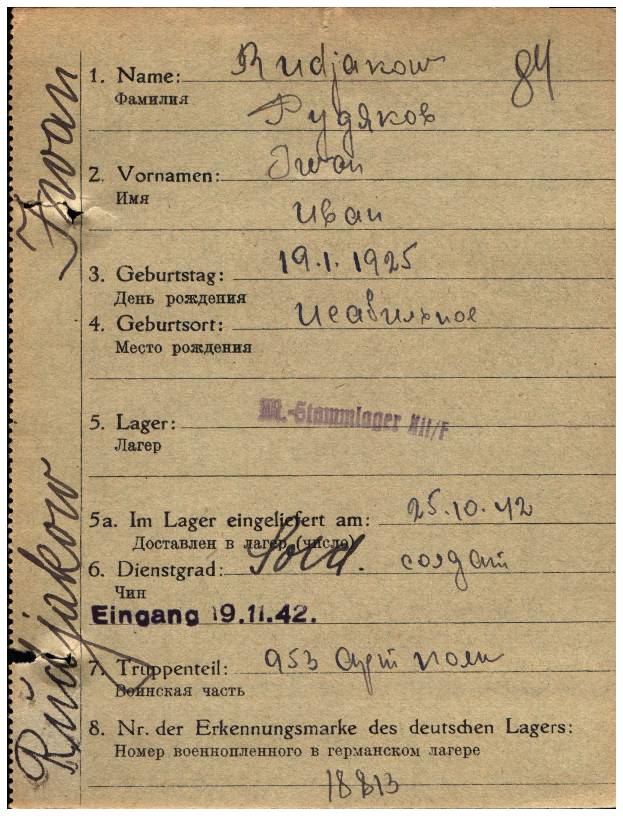 Rudjakow Iwan
84
1. Name: Rudjakow
Фамилия
Рудяков
2. Vornamen: Iwan
Имя
Иван
3. Geburtstag: 19.1.1925
День рождения
4. Geburtsort:
Место рождения
5. Lager: M.-Stammlager XII/F
Лагер
5a. Im Lager eingeliefert am: 25.10.42
Доставлен в лагер (число)
6. Dienstgrad: Sold. солдат
Чин
Eingang 19.11.42.
7. Truppenteil: 953 арт полк
Воинская часть
8. Nr. der Erkennungsmarke des deutschen Lagers:
Номер военнопленного в германском лагере
18813